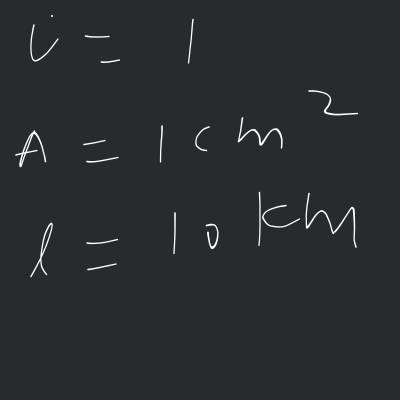 i = 1
A = 1 cm²
l = 10 km